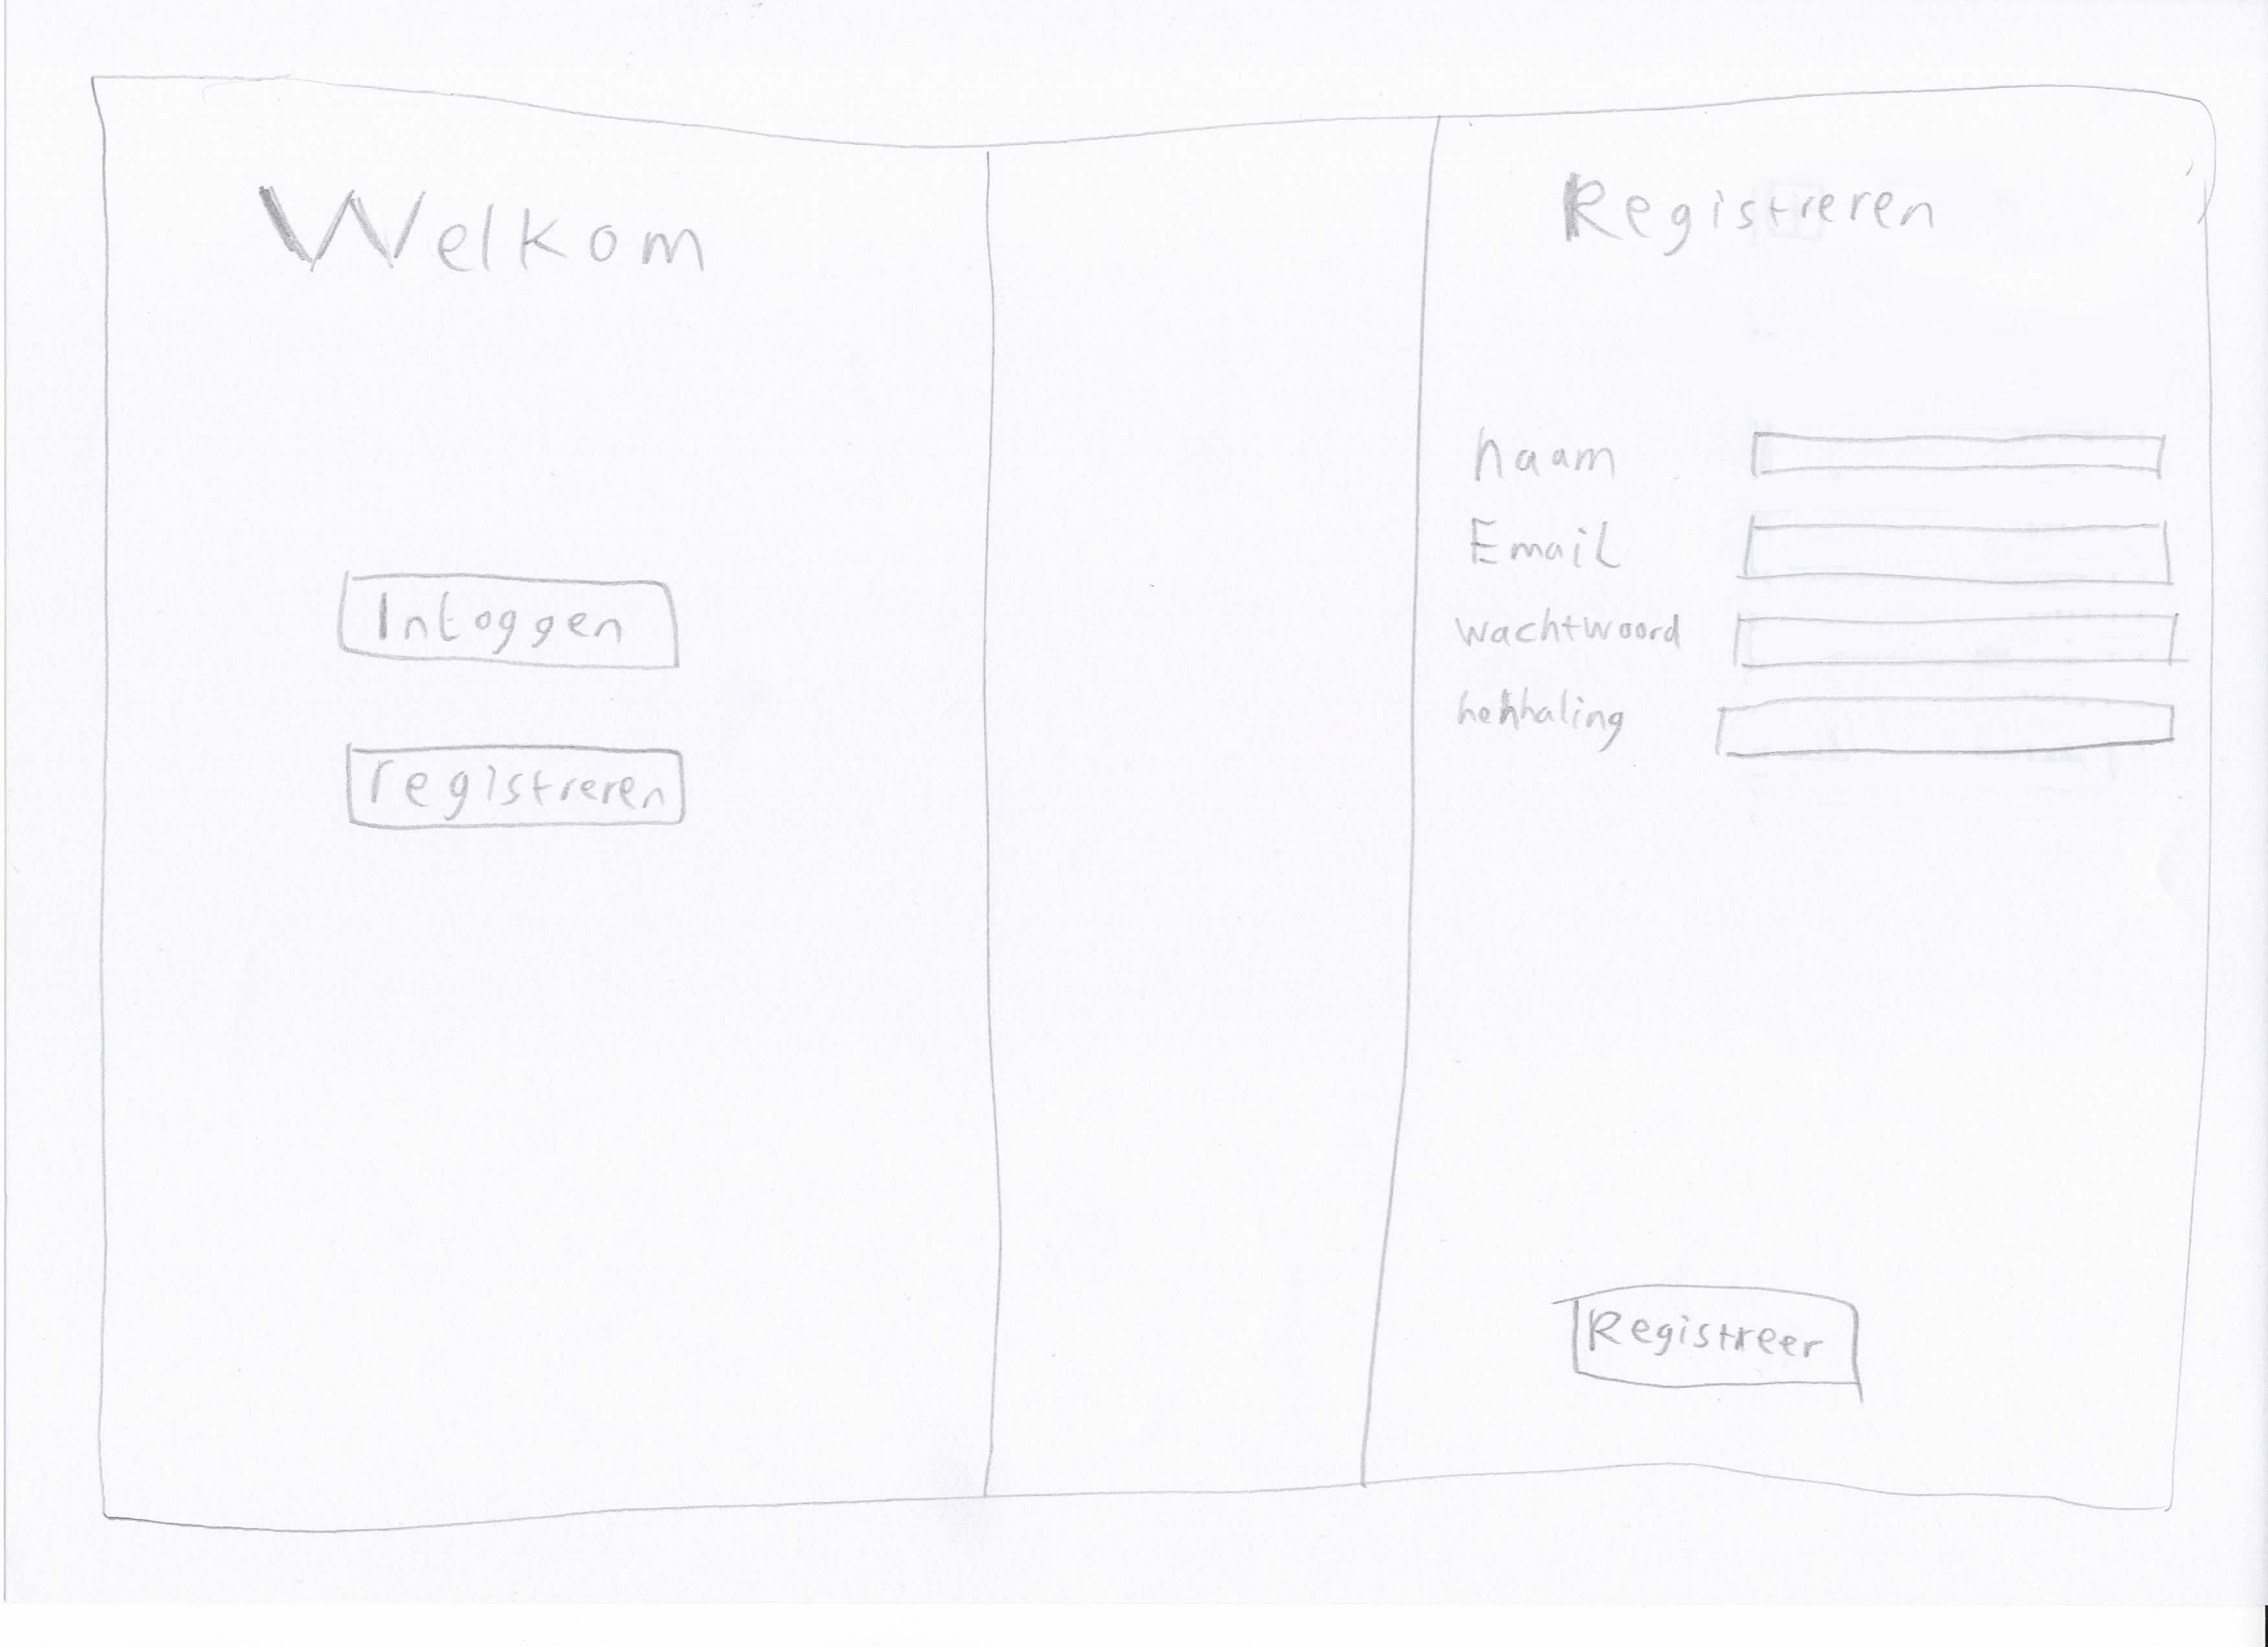 Welkom
Inloggen
registreren
Registreren
naam
Email
wachtwoord
Registreer